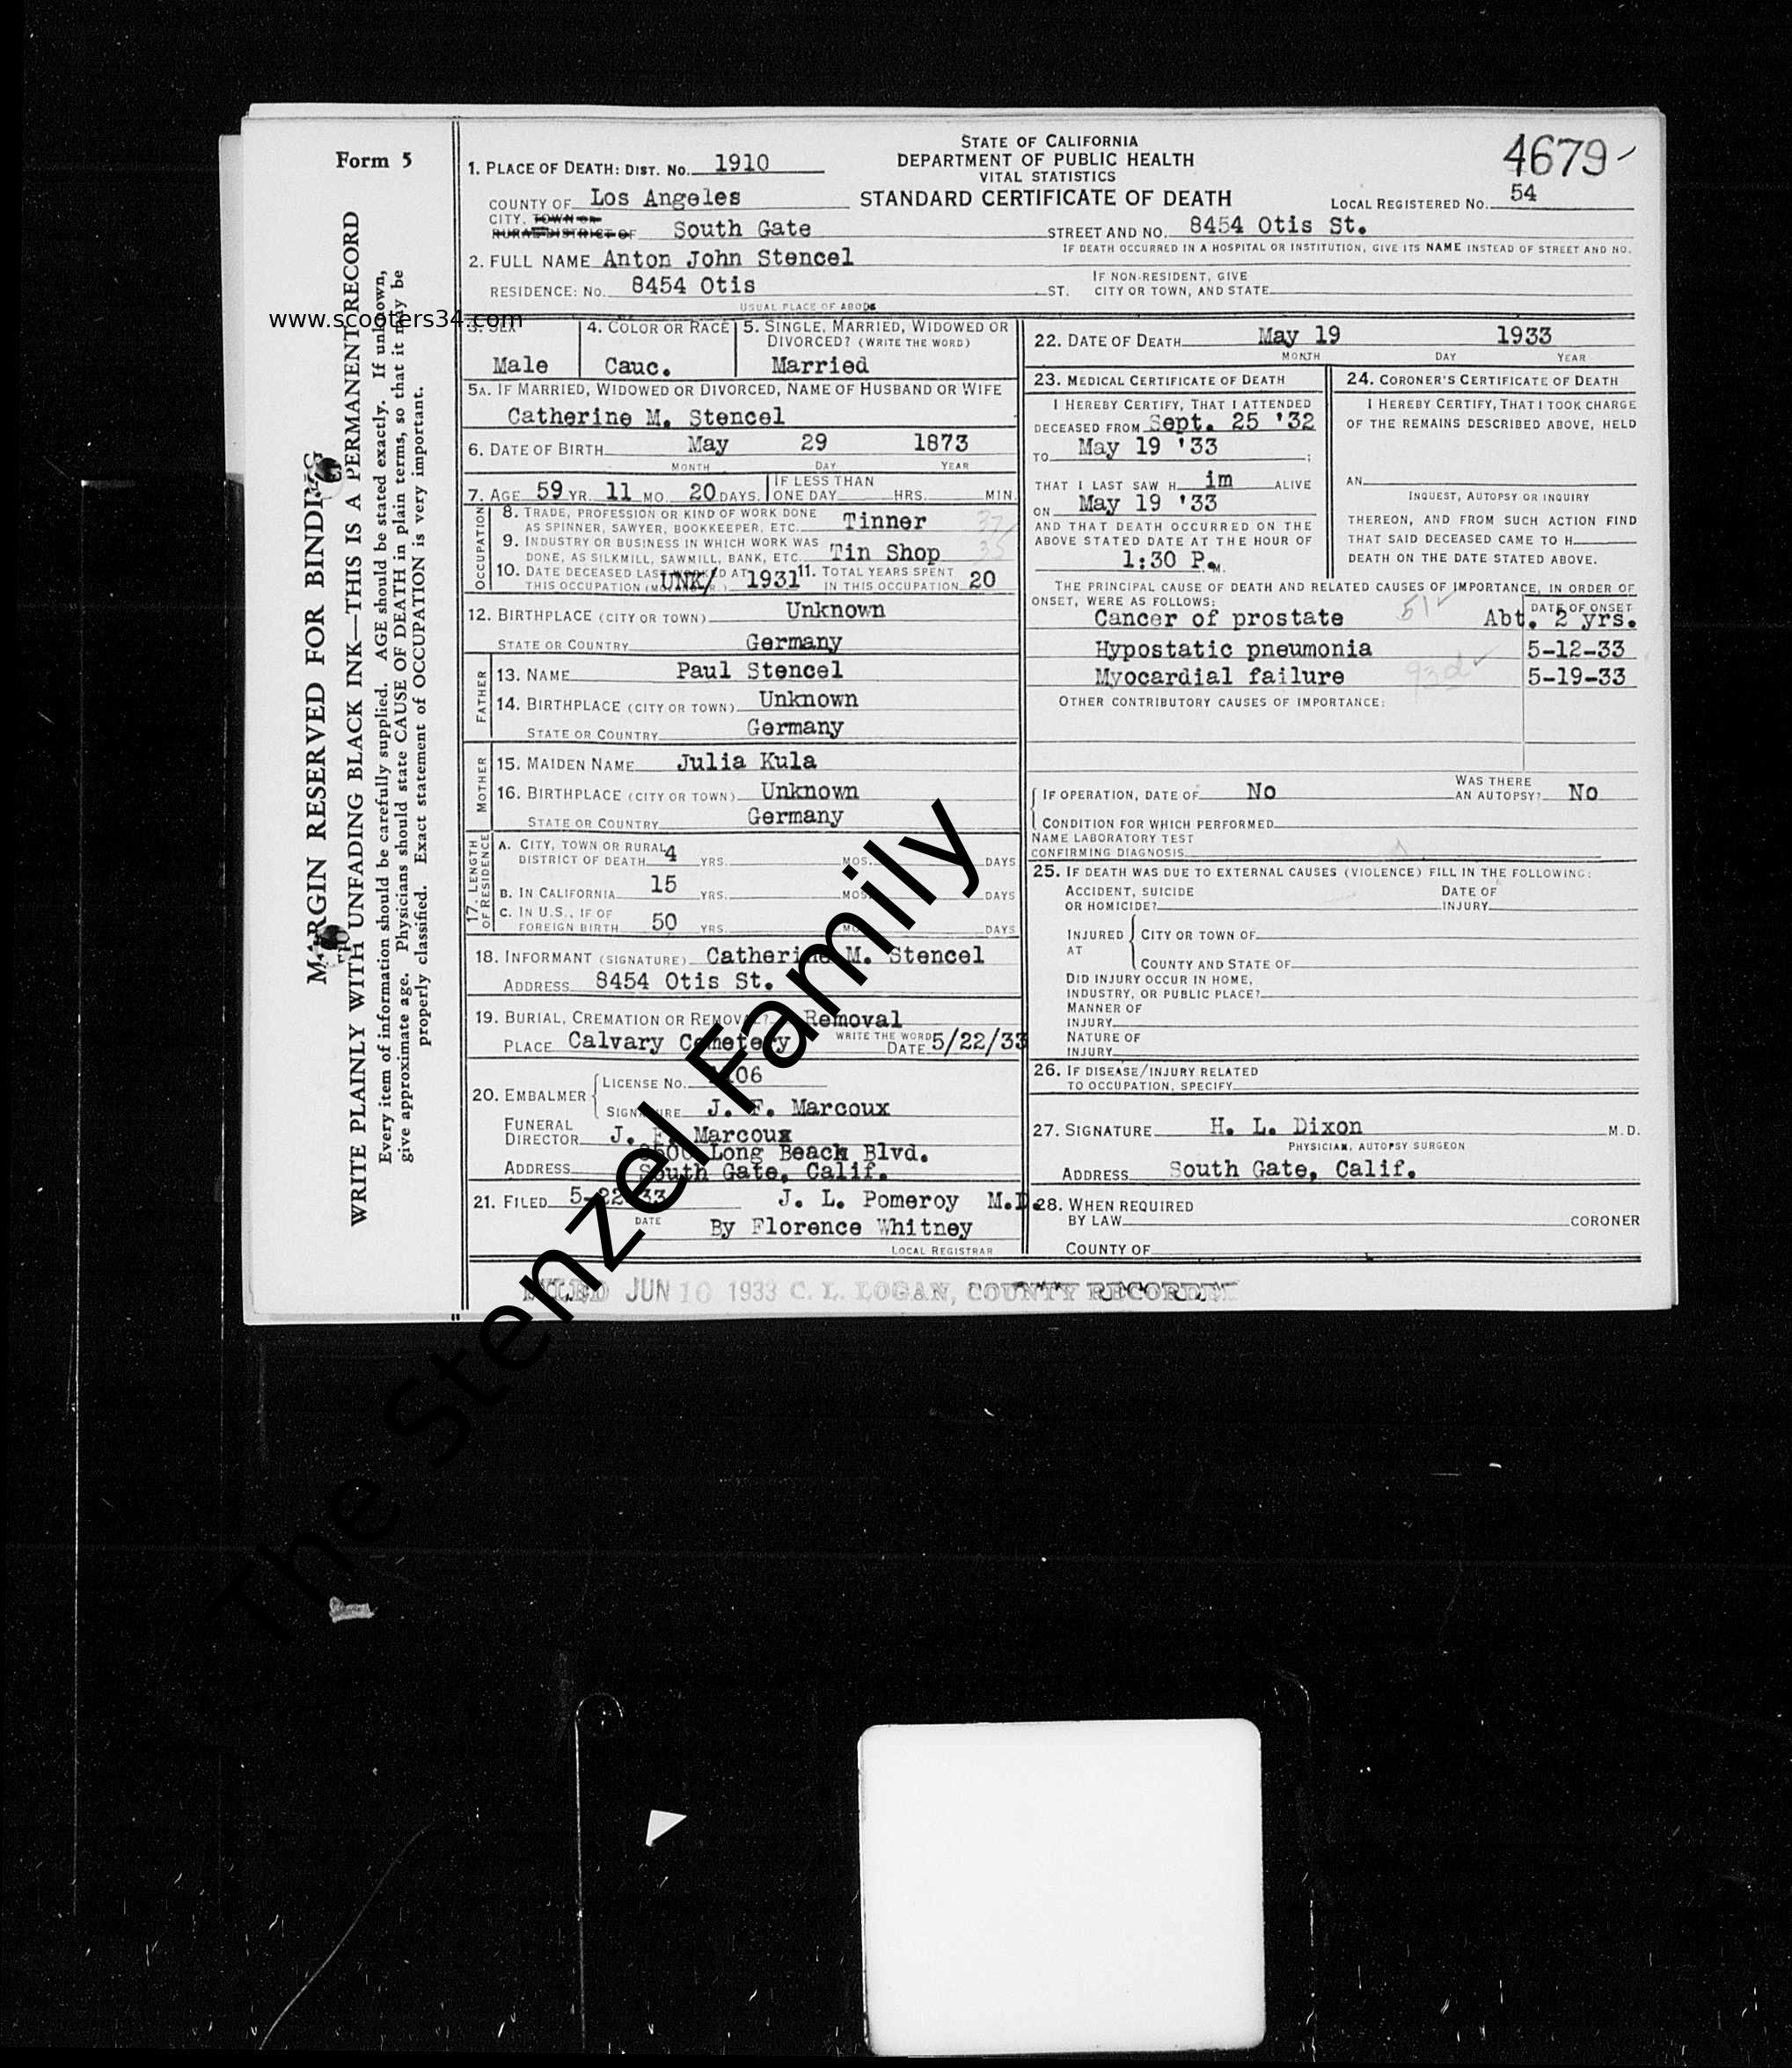 Form 5
MARGIN RESERVED FOR BINDING
WRITE PLAINLY WITH UNFADING BLACK INK—THIS IS A PERMANENT RECORD
Every item of information should be carefully supplied. AGE should be stated exactly. If unknown,
give approximate age. Physicians should state CAUSE OF DEATH in plain terms, so that it may be
properly classified. Exact statement of OCCUPATION is very important.
www.scooters34.com
The Stenzel Family
STATE OF CALIFORNIA
DEPARTMENT OF PUBLIC HEALTH
VITAL STATISTICS
STANDARD CERTIFICATE OF DEATH
4679
LOCAL REGISTERED NO. 54
1. PLACE OF DEATH: DIST. NO. 1910
COUNTY OF Los Angeles
CITY, TOWN OR
RURAL DISTRICT OF South Gate
STREET AND NO. 8454 Otis St.
IF DEATH OCCURRED IN A HOSPITAL OR INSTITUTION, GIVE ITS NAME INSTEAD OF STREET AND NO.
2. FULL NAME Anton John Stencel
RESIDENCE: NO. 8454 Otis ST.
USUAL PLACE OF ABODE
IF NON-RESIDENT, GIVE
CITY OR TOWN, AND STATE
3. SEX
Male
4. COLOR OR RACE
Cauc.
5. SINGLE, MARRIED, WIDOWED OR
DIVORCED? (WRITE THE WORD)
Married
5A. IF MARRIED, WIDOWED OR DIVORCED, NAME OF HUSBAND OR WIFE
Catherine M. Stencel
6. DATE OF BIRTH May 29 1873
MONTH DAY YEAR
7. AGE 59 YR. 11 MO. 20 DAYS. IF LESS THAN
ONE DAY HRS. MIN.
OCCUPATION
8. TRADE, PROFESSION OR KIND OF WORK DONE
AS SPINNER, SAWYER, BOOKKEEPER, ETC. Tinner
9. INDUSTRY OR BUSINESS IN WHICH WORK WAS
DONE, AS SILKMILL, SAWMILL, BANK, ETC. Tin Shop
10. DATE DECEASED LAST WORKED AT
THIS OCCUPATION UNK/ 1931
11. TOTAL YEARS SPENT
IN THIS OCCUPATION 20
12. BIRTHPLACE (CITY OR TOWN) Unknown
STATE OR COUNTRY Germany
FATHER
13. NAME Paul Stencel
14. BIRTHPLACE (CITY OR TOWN) Unknown
STATE OR COUNTRY Germany
MOTHER
15. MAIDEN NAME Julia Kula
16. BIRTHPLACE (CITY OR TOWN) Unknown
STATE OR COUNTRY Germany
17. LENGTH
OF RESIDENCE
A. CITY, TOWN OR RURAL
DISTRICT OF DEATH 4 YRS. MOS. DAYS
B. IN CALIFORNIA 15 YRS. MOS. DAYS
C. IN U.S., IF OF
FOREIGN BIRTH 50 YRS. MOS. DAYS
18. INFORMANT (SIGNATURE) Catherine M. Stencel
ADDRESS 8454 Otis St.
19. BURIAL, CREMATION OR REMOVAL? Removal
WRITE THE WORD
PLACE Calvary Cemetery DATE 5/22/33
20. EMBALMER
LICENSE NO.
SIGNATURE J. F. Marcoux
FUNERAL
DIRECTOR J. F. Marcoux
Long Beach Blvd.
ADDRESS South Gate, Calif.
21. FILED 5-22-33 J. L. Pomeroy M.D.
DATE
By Florence Whitney
LOCAL REGISTRAR
22. DATE OF DEATH May 19 1933
MONTH DAY YEAR
23. MEDICAL CERTIFICATE OF DEATH
I HEREBY CERTIFY, THAT I ATTENDED
DECEASED FROM Sept. 25 '32
TO May 19 '33;
THAT I LAST SAW H im ALIVE
ON May 19 '33
AND THAT DEATH OCCURRED ON THE
ABOVE STATED DATE AT THE HOUR OF
1:30 P.M.
24. CORONER'S CERTIFICATE OF DEATH
I HEREBY CERTIFY, THAT I TOOK CHARGE
OF THE REMAINS DESCRIBED ABOVE, HELD
AN
INQUEST, AUTOPSY OR INQUIRY
THEREON, AND FROM SUCH ACTION FIND
THAT SAID DECEASED CAME TO H
DEATH ON THE DATE STATED ABOVE.
THE PRINCIPAL CAUSE OF DEATH AND RELATED CAUSES OF IMPORTANCE, IN ORDER OF
ONSET, WERE AS FOLLOWS:
DATE OF ONSET
Cancer of prostate 51 Abt. 2 yrs.
Hypostatic pneumonia 5-12-33
Myocardial failure 93d 5-19-33
OTHER CONTRIBUTORY CAUSES OF IMPORTANCE:
IF OPERATION, DATE OF No
WAS THERE
AN AUTOPSY? No
CONDITION FOR WHICH PERFORMED
NAME LABORATORY TEST
CONFIRMING DIAGNOSIS
25. IF DEATH WAS DUE TO EXTERNAL CAUSES (VIOLENCE) FILL IN THE FOLLOWING:
ACCIDENT, SUICIDE
OR HOMICIDE?
DATE OF
INJURY
INJURED
AT
CITY OR TOWN OF
COUNTY AND STATE OF
DID INJURY OCCUR IN HOME,
INDUSTRY, OR PUBLIC PLACE?
MANNER OF
INJURY
NATURE OF
INJURY
26. IF DISEASE/INJURY RELATED
TO OCCUPATION, SPECIFY
27. SIGNATURE H. L. Dixon M.D.
PHYSICIAN, AUTOPSY SURGEON
ADDRESS South Gate, Calif.
28. WHEN REQUIRED
BY LAW CORONER
COUNTY OF
FILED JUN 10 1933 C. L. LOGAN, COUNTY RECORDER